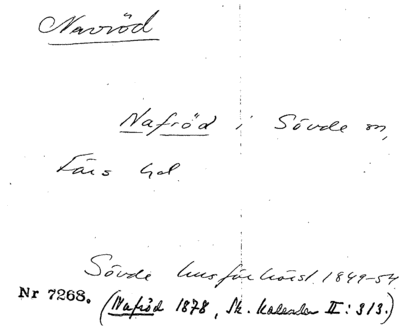 Navröd
Nafröd i Sövde sn,
Färs hd
Sövde husförhörsl. 1849-54
Nr 7268. (Nafröd 1878, Sk. Kalender II: 313.)